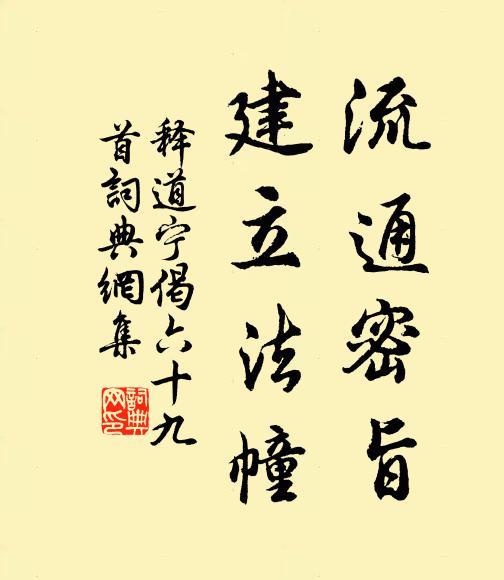 流通密旨
建立法幢
释道宁偈六十九
首词典網集
詞典
网印